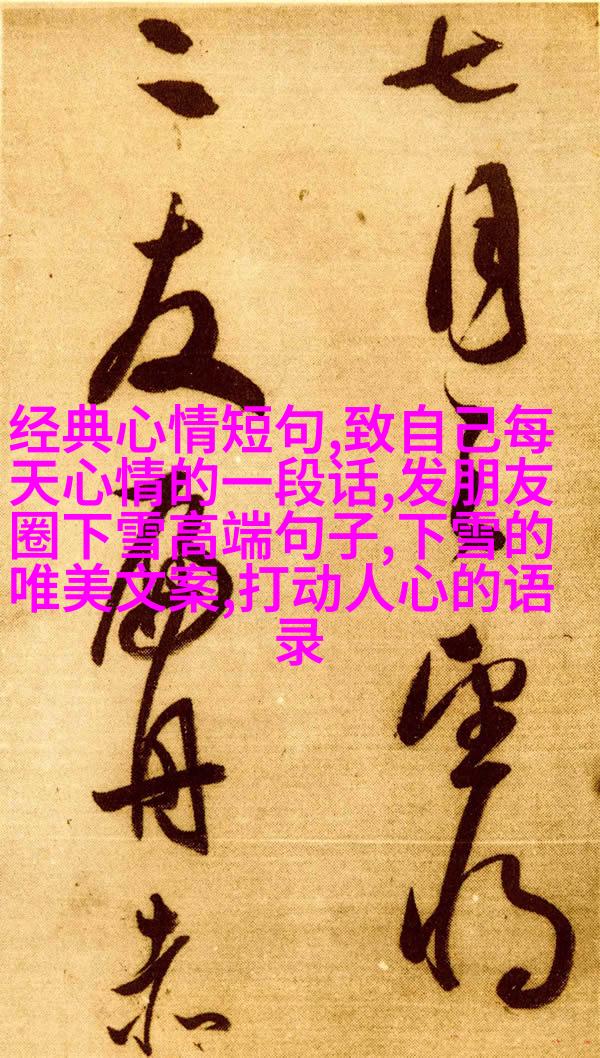 七月之望将
二友扁舟赤
经典心情短句,致自己每
天心情的一段话,发朋友
圈下雪高端句子,下雪的
唯美文案,打动人心的语
录